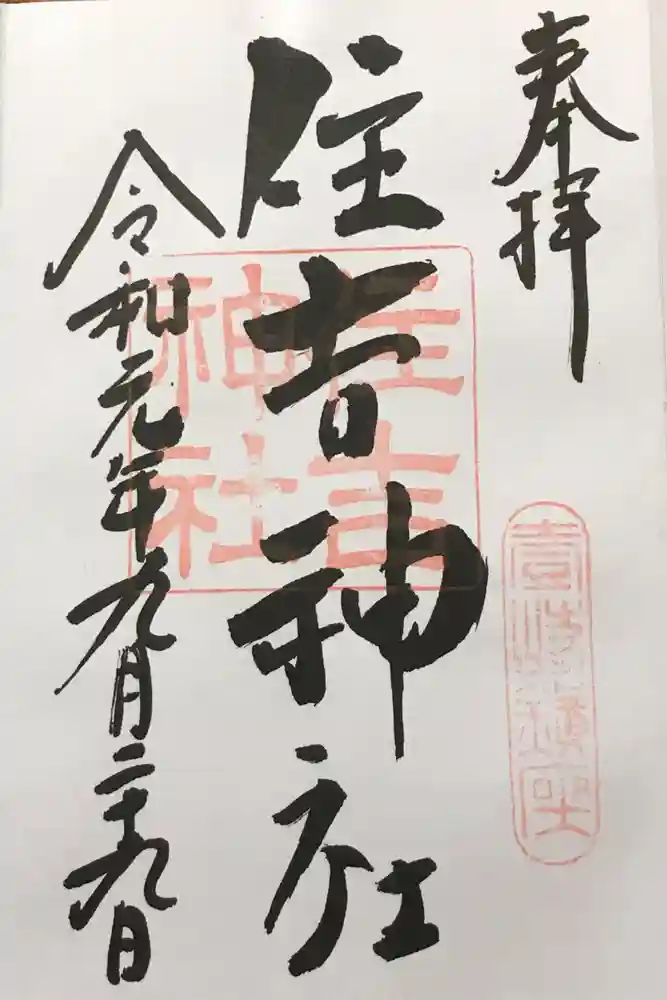 奉拝
住吉神社
令和元年九月二十九日
住吉
神社